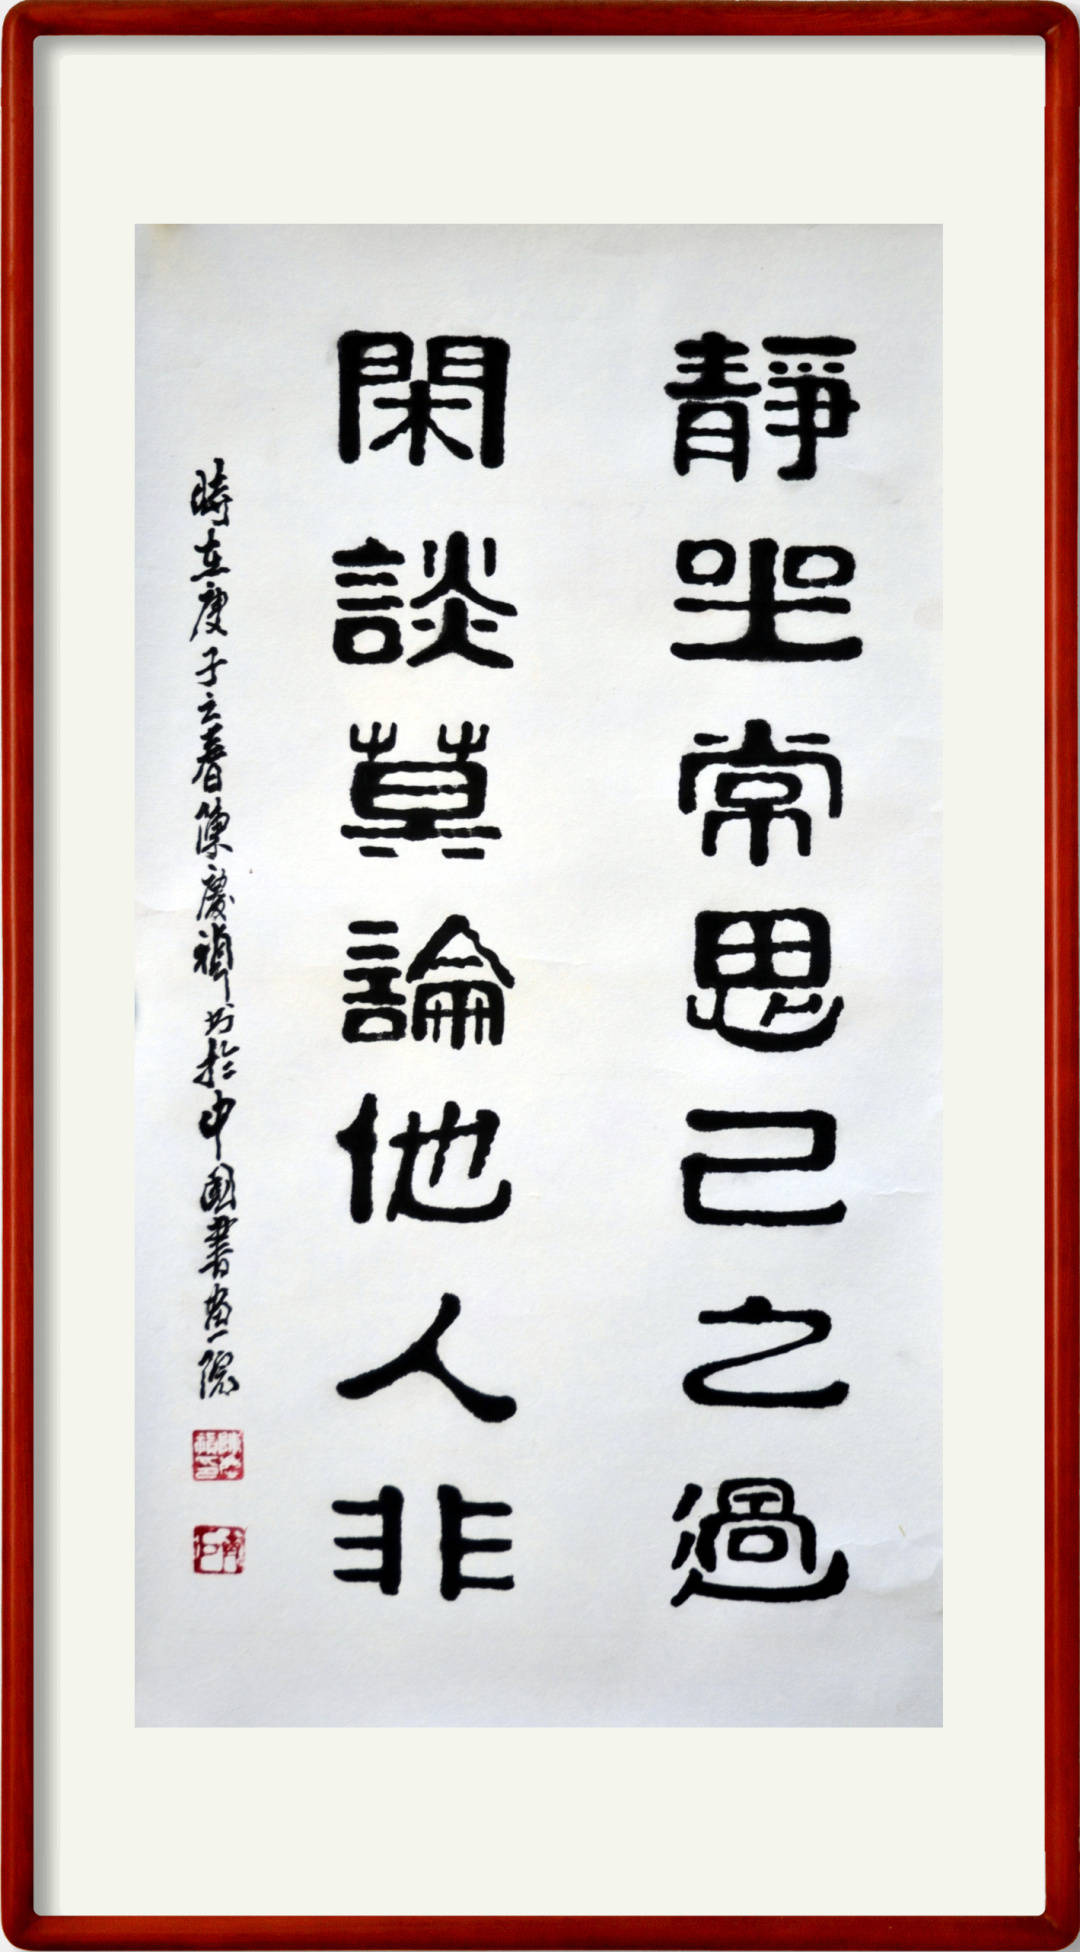 靜坐常思己之過
閑談莫論他人非
時在庚子之春陳慶禪书於中國書畫院